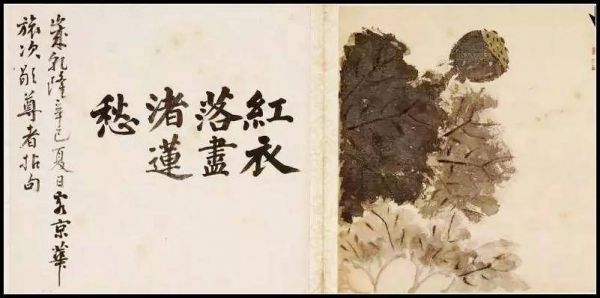 紅衣
落盡
渚蓮
愁
歲乾隆辛巳夏日客京華
旅次尊者拈句